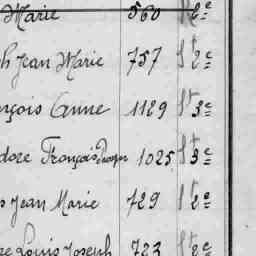 Marie 560 St 2e
h Jean Marie 757 St 2e
nçois Anne 1129 St 3e
dore François 1025 St 3e
s Jean Marie 729 St 2e
re Louis Joseph 723 St 2e